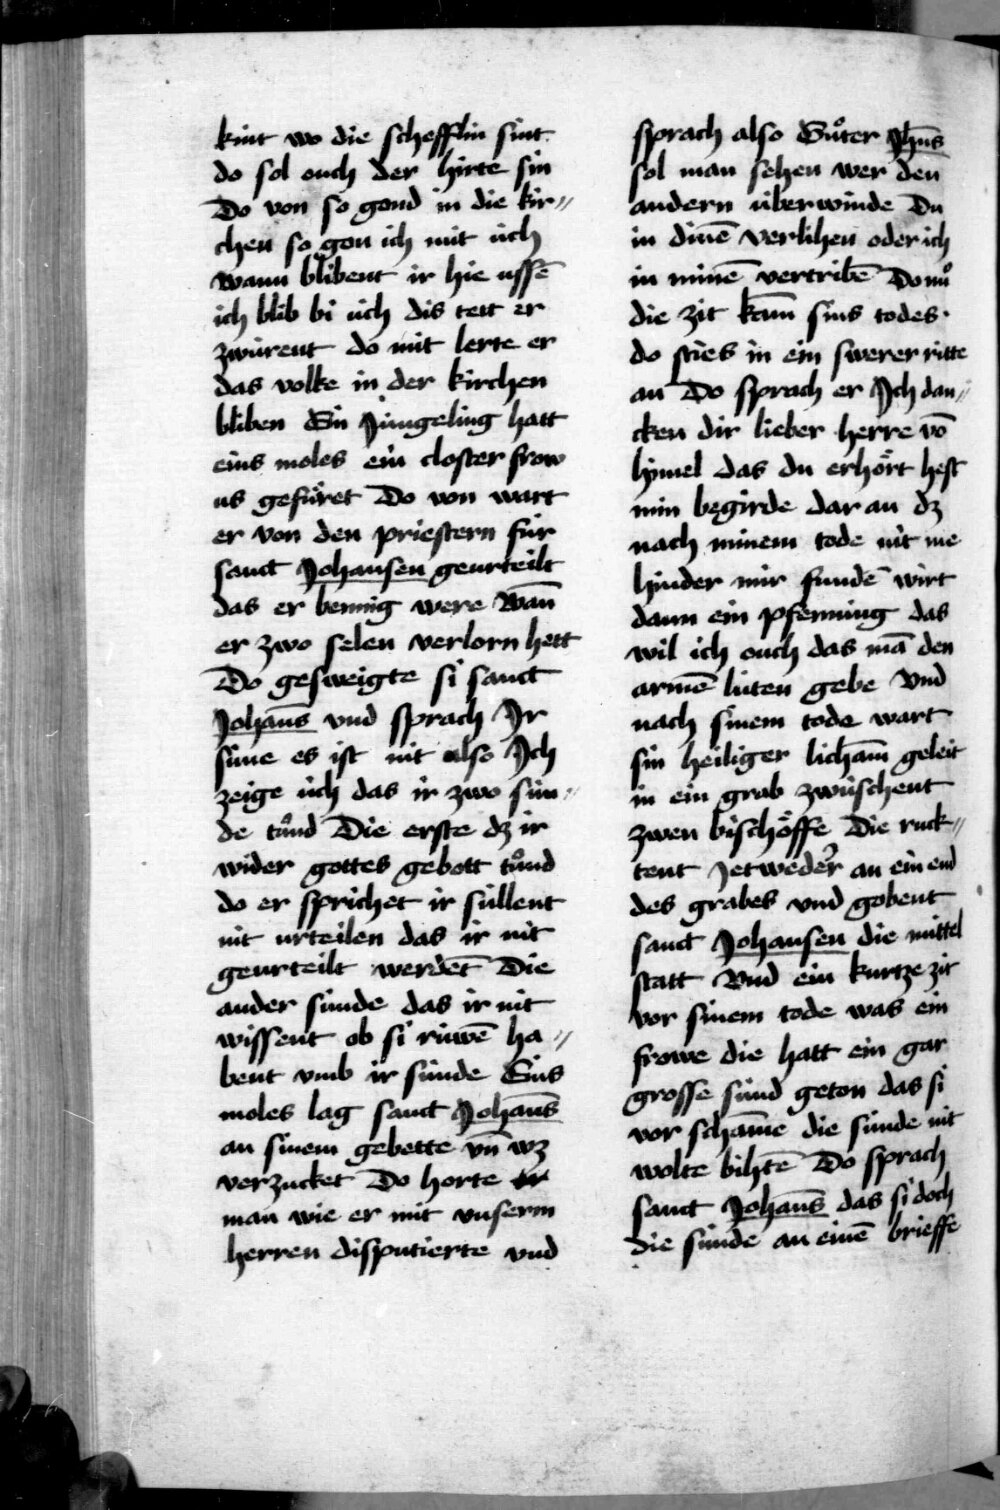 kint wo die schefflin sint
do sol ouch der hirte sin
Do von so gond in die kir〃
chen so gon ich mit úch
wann blibent ir hie ussē
ich blib bi úch dis tett er
zwúrent do mit lerte er
das volke in der kirchen
bliben Ein Júngeling hatt
eins moles ein closter frow
us gefúͤret Do von wart
er von den priestern fúr
sanct Johansen geurteilt
das er bennig were Wan̄
er zwo selen verlorn hett
Do gesweigte si sanct
Johan̄s vnd sprach Ir
súne es ist nit also Ich
zeige úch das ir zwo sún〃
de tuͦnd Die erste dz ir
wider gottes gebott tuͦnd
do er sprichet ir súllent
nit urteilen das ir nit
geurteilt werdēt Die
ander súnde das ir nit
wissent ob si rúwē ha〃
bent vmb ir súnde Eins
moles lag sanct Johan̄s
an sinem gebette vn̄ wz
verzucket Do horte er
man wie er mit vnserm
herren disputierte vnd
sprach also Guͦter Jhūs
sol man sehen wer den
andern úberwinde Du
in dinē verlihen oder ich
in minē vertribē Do nuͦ
die zit kam̄ sins todes
do sties in ein swerer ritte
an Do sprach er Ich dan〃
cken dir lieber herre vō
himel das du erhoͤrt hest
min begirde dar an dz
nach minem tode nit me
hinder mir fundē wirt
dann ein pfenning das
wil ich ouch das mā den
armē lúten gebe Vnd
nach sinem tode wart
sin heiliger licham̄ geleit
in ein grab zwúschent
zwen bischoͤffe Die ruck〃
tent Jetweder an ein end
des grabes vnd gobent
sanct Johansen die mittel
statt Vnd ein kurtze zit
vor sinem tode was ein
frowe die hatt ein gar
grosse súnd geton das si
vor scham̄e die súnde nit
wolte bihtē Do sprach
sanct Johan̄s das si doch
die súnde an einē brieffe